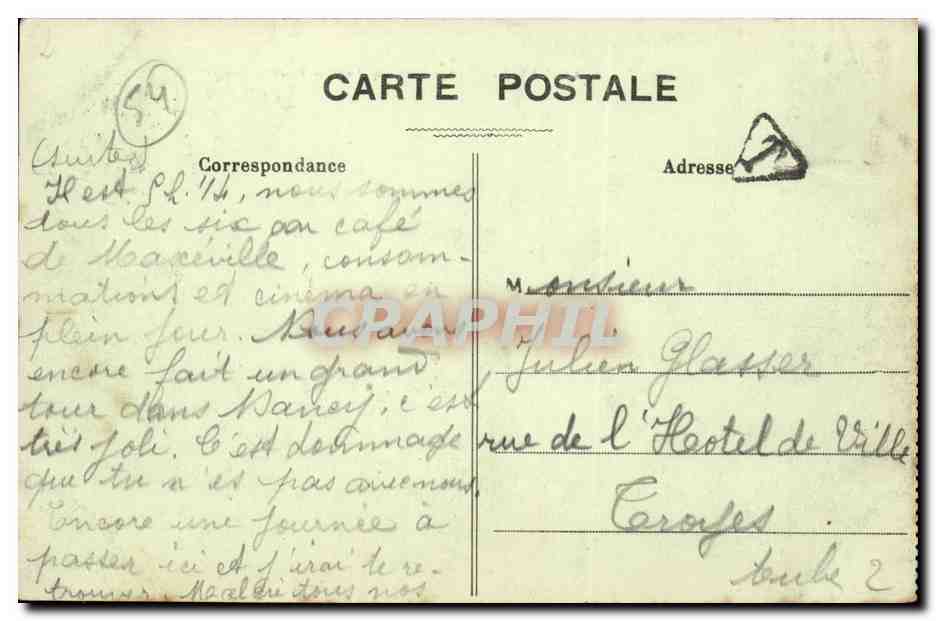 54
CARTE POSTALE
(suite)
Correspondance
Adresse
T
Il est 5h. 1/4, nous sommes
tous les six au café
de Maxéville, consom-
mations et cinéma en
plein jour. Nous avons
encore fait un grand
tour dans Nancy, c'est
très joli. C'est dommage
que tu n'es pas avec nous.
Encore une journée à
passer ici et j'irai te re-
trouver. Malgré tous nos
Monsieur
Julien Glasser
rue de l'Hotel de Ville
Troyes
Aube 2
CPAPHIL